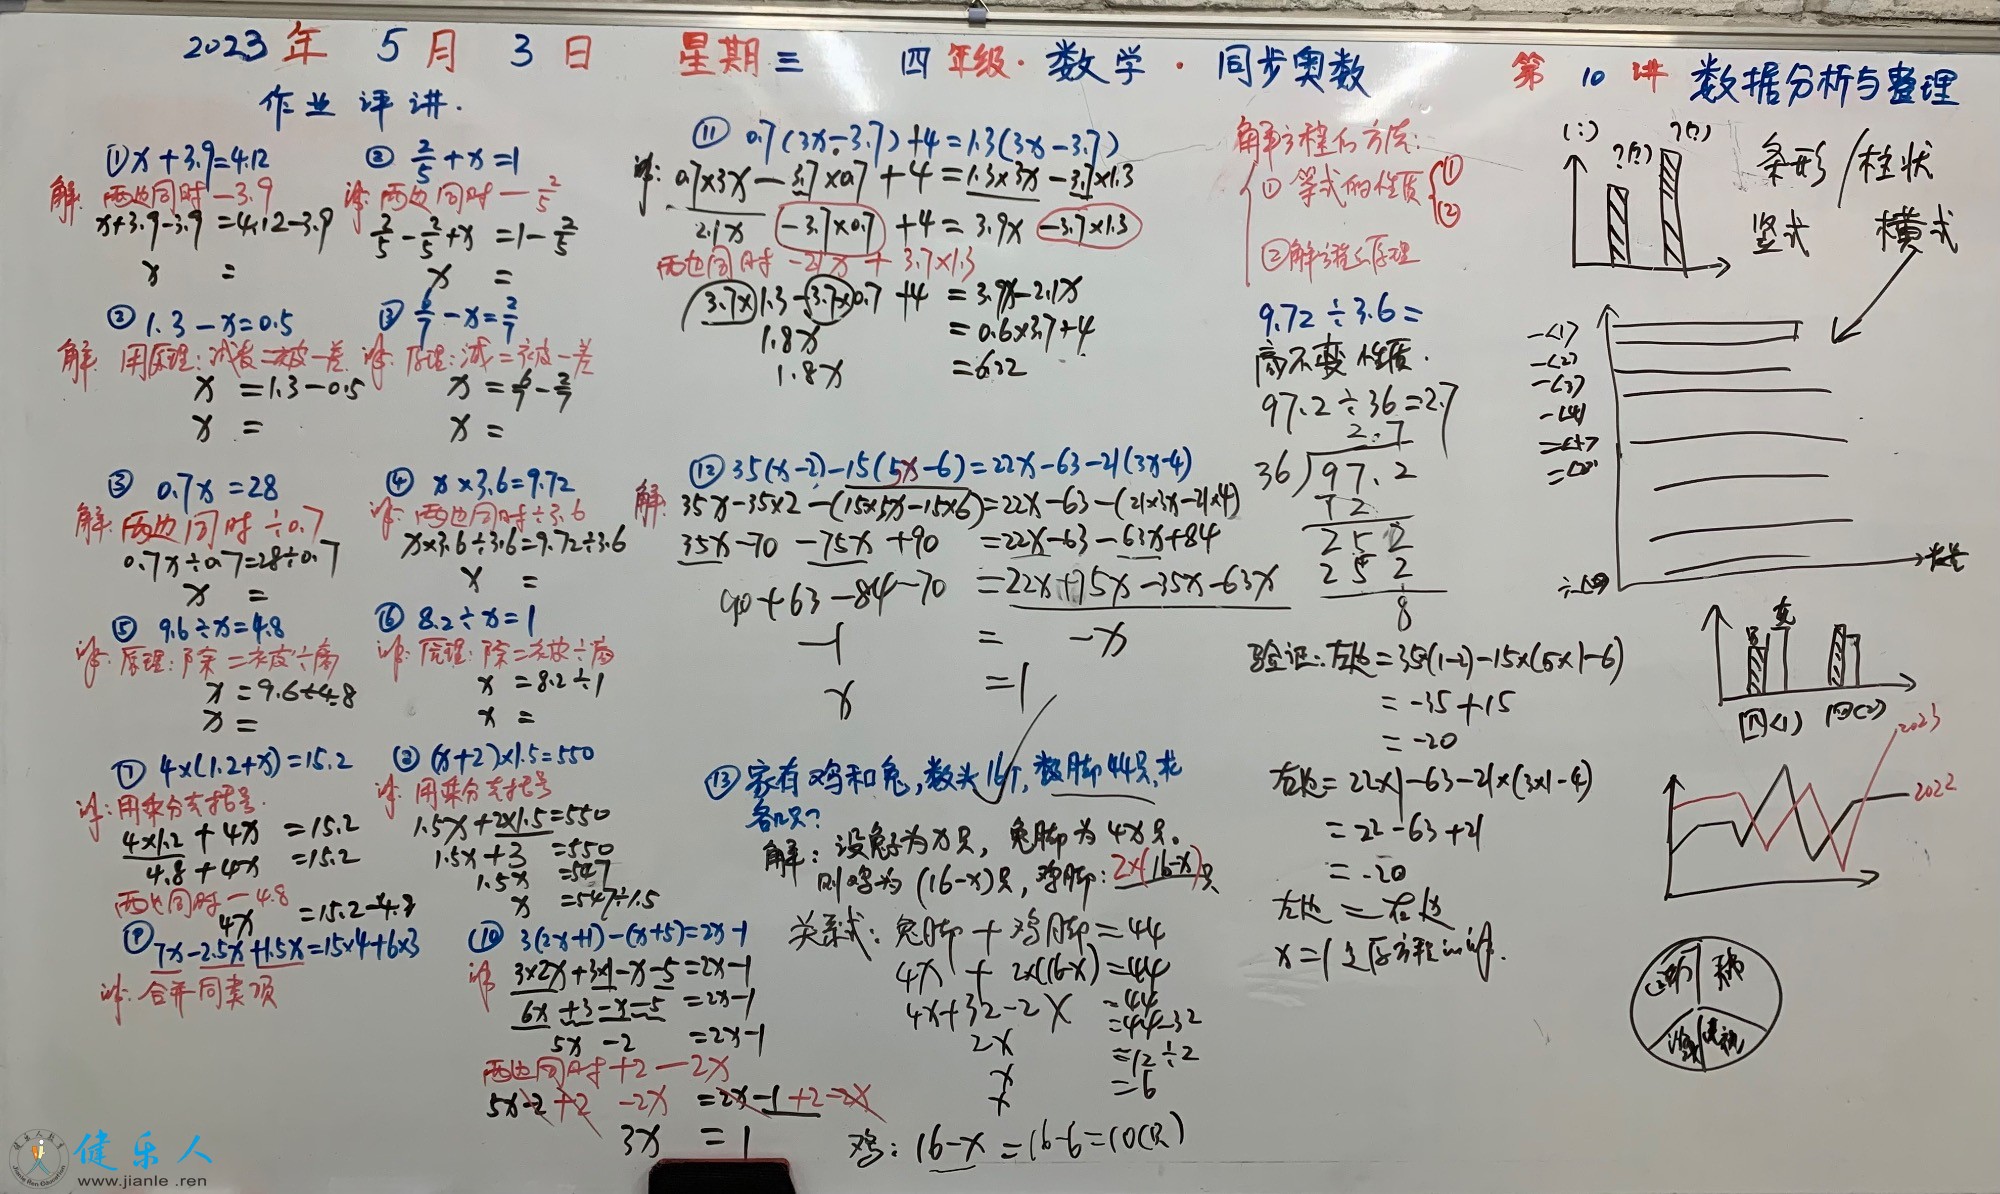 2023年 5月 3日 星期三 四年级·数学·同步奥数 第10讲 数据分析与整理
作业评讲.
① x+3.9=4.12
解: 两边同时-3.9
x+3.9-3.9=4.12-3.9
x =
② 2/5+x=1
解: 两边同时-2/5
2/5-2/5+x=1-2/5
x =
② 1.3-x=0.5
解: 用原理:减数=被-差
x =1.3-0.5
x =
解: 原理:减=被-差
x =
③ 0.7x=28
解: 两边同时÷0.7
0.7x÷0.7=28÷0.7
x =
④ x×3.6=9.72
解: 两边同时÷3.6
x×3.6÷3.6=9.72÷3.6
x =
⑤ 9.6÷x=4.8
解: 原理:除=被÷商
x=9.6÷4.8
x=
⑥ 8.2÷x=1
解: 原理:除=被÷商
x =8.2÷1
x =
⑦ 4×(1.2+x)=15.2
解: 用乘分去括号.
4×1.2+4x =15.2
4.8+4x =15.2
两边同时-4.8
4x =15.2-4.8
(x+2)×1.5=550
解: 用乘分去括号
1.5x+2×1.5=550
1.5x+3 =550
1.5x =547
x =547÷1.5
⑨ 7x-2.5x+1.5x=15×4+6×3
解: 合并同类项
⑩ 3(2x+1)-(x+5)=2x-1
解 3×2x+3×1-x-5=2x-1
6x+3-x-5 =2x-1
5x-2 =2x-1
两边同时+2-2x
5x-2+2 -2x =2x-1+2-2x
3x = 1
⑪ 0.7(3x-3.7)+4=1.3(3x-3.7)
解: 0.7×3x-3.7×0.7+4=1.3×3x-3.7×1.3
2.1x -3.7×0.7 +4=3.9x -3.7×1.3
两边同时 -2.1x + 3.7×1.3
3.7×1.3-3.7×0.7+4 =3.9x-2.1x
1.8x =0.6×3.7+4
1.8x =6.22
⑫ 35(x-2)-15(5x-6)=22x-63-21(3x-4)
解: 35x-35×2-(15×5x-15×6)=22x-63-(21×3x-21×4)
35x-70-75x+90 =22x-63-63x+84
90+63-84-70 =22x+75x-35x-63x
-1 = -x
x =1
⑬ 家有鸡和兔,数头16个,数脚44只,求
各几只?
解: 设兔子为x只, 兔脚为4x只。
则鸡为(16-x)只, 鸡脚:2×(16-x)只
关系式: 兔脚+鸡脚=44
4x + 2×(16-x)=44
4x+32-2x =44
2x =44-32
x =12÷2
x =6
鸡: 16-x=16-6=10(只)
解方程的方法:
① 等式的性质 { ① (2)
②解方程之原理
9.72÷3.6=
商不变性质.
97.2÷36=2.7
2.7
36)97.2
72
252
252
8
验证:左边=35×(1-2)-15×(5×1-6)
=-35+15
=-20
右边=22×1-63-21×(3×1-4)
=22-63+21
=-20
左边=右边
x=1是原方程的解.
(:) ?(?) ?(?)
条形/柱状
竖式 横式
-<1>
-<2>
-<3>
-<4>
四<1> 四<2>
2023
2022